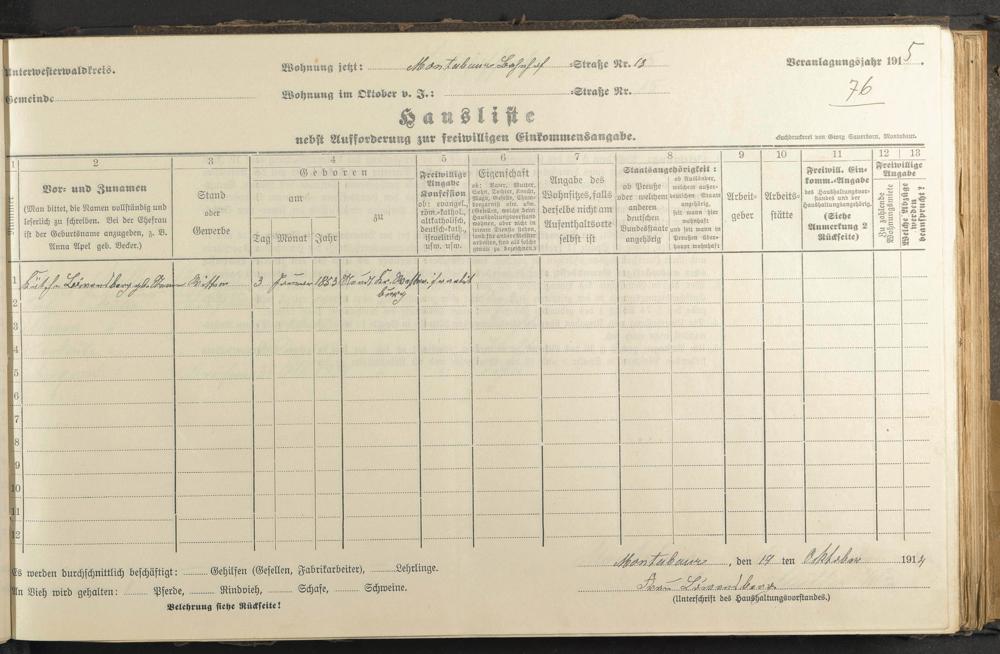 Unterwesterwaldkreis.
Wohnung jetzt: Montabaur Bahnhof Straße Nr. 13
Veranlagungsjahr 1915.
Gemeinde
Wohnung im Oktober v. J.: Straße Nr.
76
Hausliste
nebst Aufforderung zur freiwilligen Einkommensangabe.
Buchdruckerei von Georg Sauerborn, Montabaur.
1
2
3
4
5
6
7
8
9
10
11
12
13
Nummer
Vor- und Zunamen
(Man bittet, die Namen vollständig und
leserlich zu schreiben. Bei der Ehefrau
ist der Geburtsname anzugeben, z. B.
Anna Apel geb. Becker.)
Stand
oder
Gewerbe
Geboren
am
Tag
Monat
Jahr
zu
Freiwillige
Angabe
Konfession
ob: evangel.,
röm.-kathol.,
altkatholisch,
deutsch-kath.,
israelitisch
usw. usw.
Eigenschaft
ob: Vater, Mutter,
Sohn, Tochter, Knecht,
Magd, Geselle,
Angabe des
Wohnsitzes, falls
derselbe nicht am
Aufenthaltsorte
selbst ist
Staatsangehörigkeit:
ob Preuße
oder welchem
anderen
deutschen
Bundesstaate
angehörig
ob Ausländer,
welchem außer-
deutschen Staate
angehörig,
seit wann hier
wohnhaft
und seit wann in
Preußen über-
haupt wohnhaft
Arbeit-
geber
Arbeits-
stätte
Freiwill. Ein-
komm.-Angabe
des Haushaltungsvor-
standes und der
Haushaltungsangehörig.
(Siehe
Anmerkung 2
Rückseite)
Freiwillige
Angabe
Zu zahlende
Wohnungsmiete
Welche Abzüge
werden
beansprucht?
1
Löwenberg geb. 3 Januar 1853
burg
2
3
4
5
6
7
8
9
10
11
12
Montabaur, den 19 ten Oktober 1914
Es werden durchschnittlich beschäftigt: Gehilfen (Gesellen, Fabrikarbeiter), Lehrlinge.
An Vieh wird gehalten: Pferde, Rindvieh, Schafe, Schweine.
Frau Löwenberg
(Unterschrift des Haushaltungsvorstandes.)
Belehrung siehe Rückseite!